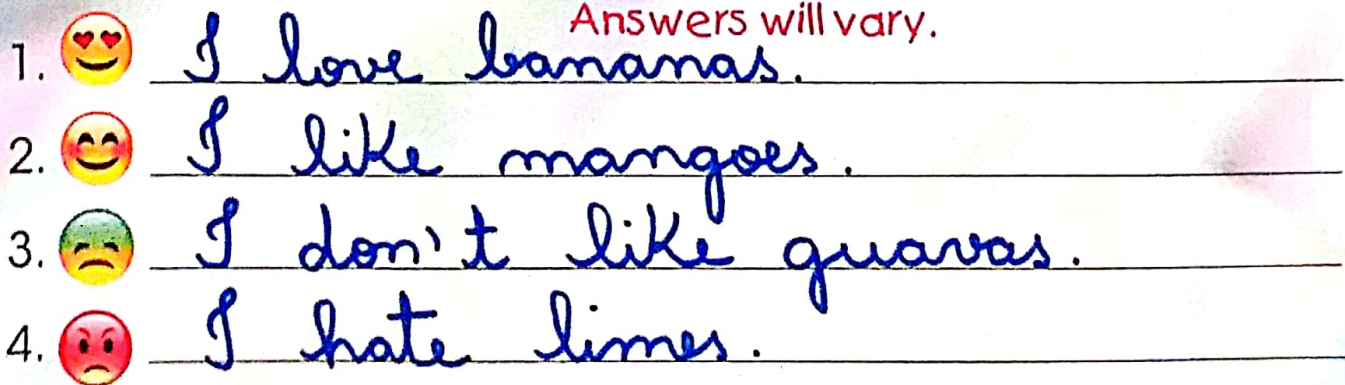 Answers will vary.
1. I love bananas.
2. I like mangoes.
3. I don't like guavas.
4. I hate limes.